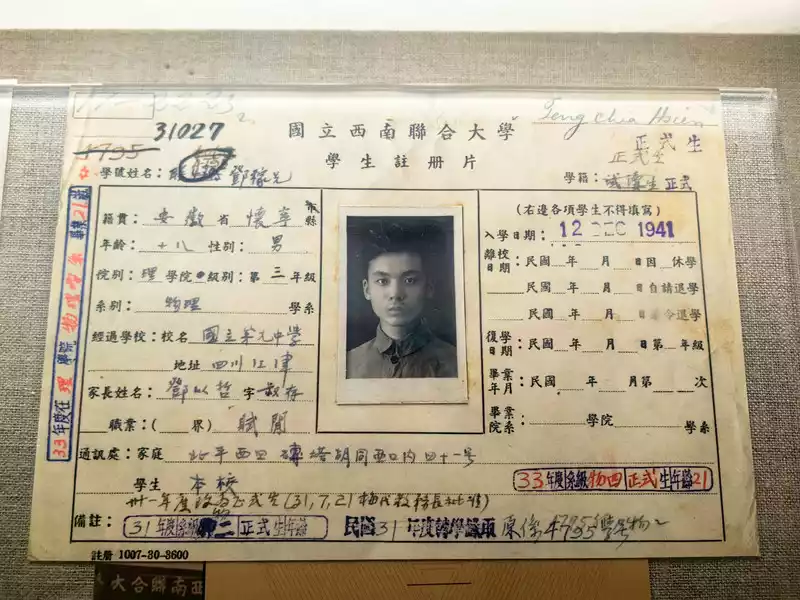 31027
4795
國立西南聯合大學
學生註冊片
Teng Chia Hsien
正式生
正式生
學號姓名： 鄧稼先
學籍： 試讀生 正式
籍貫： 安徽 省 懷寧 縣
年齡： 十八 性別： 男
院別： 理 學院 級別：第 三 年級
系別： 物理 學系
經過學校：校名 國立第九中學
地址 四川江津
家長姓名： 鄧以蟄 字 叔存
職業：( 界) 賦閒
通訊處：家庭 北平西四 磚塔胡同西口內四十一号
學生 本校
卅一年度改為正式生(31,7,21梅代教務長批准)
備註： 31年度係級 二 正式生年齡
民國31年度轉學 原係4795 物二
(右邊各項學生不得填寫)
入學日期： 12 DEC 1941
離校日期： 民國 年 月 日因 休學
民國 年 月 日自請退學
民國 年 月 日 令退學
復學日期： 民國 年 月 日第 年級
畢業年月： 民國 年 月第 次
畢業院系： 學院 學系
33年度係級物四 正式生年齡21
33年度在 理 學院 物理學系 畢業 21
註册 1007-30-3600
大合聯南西